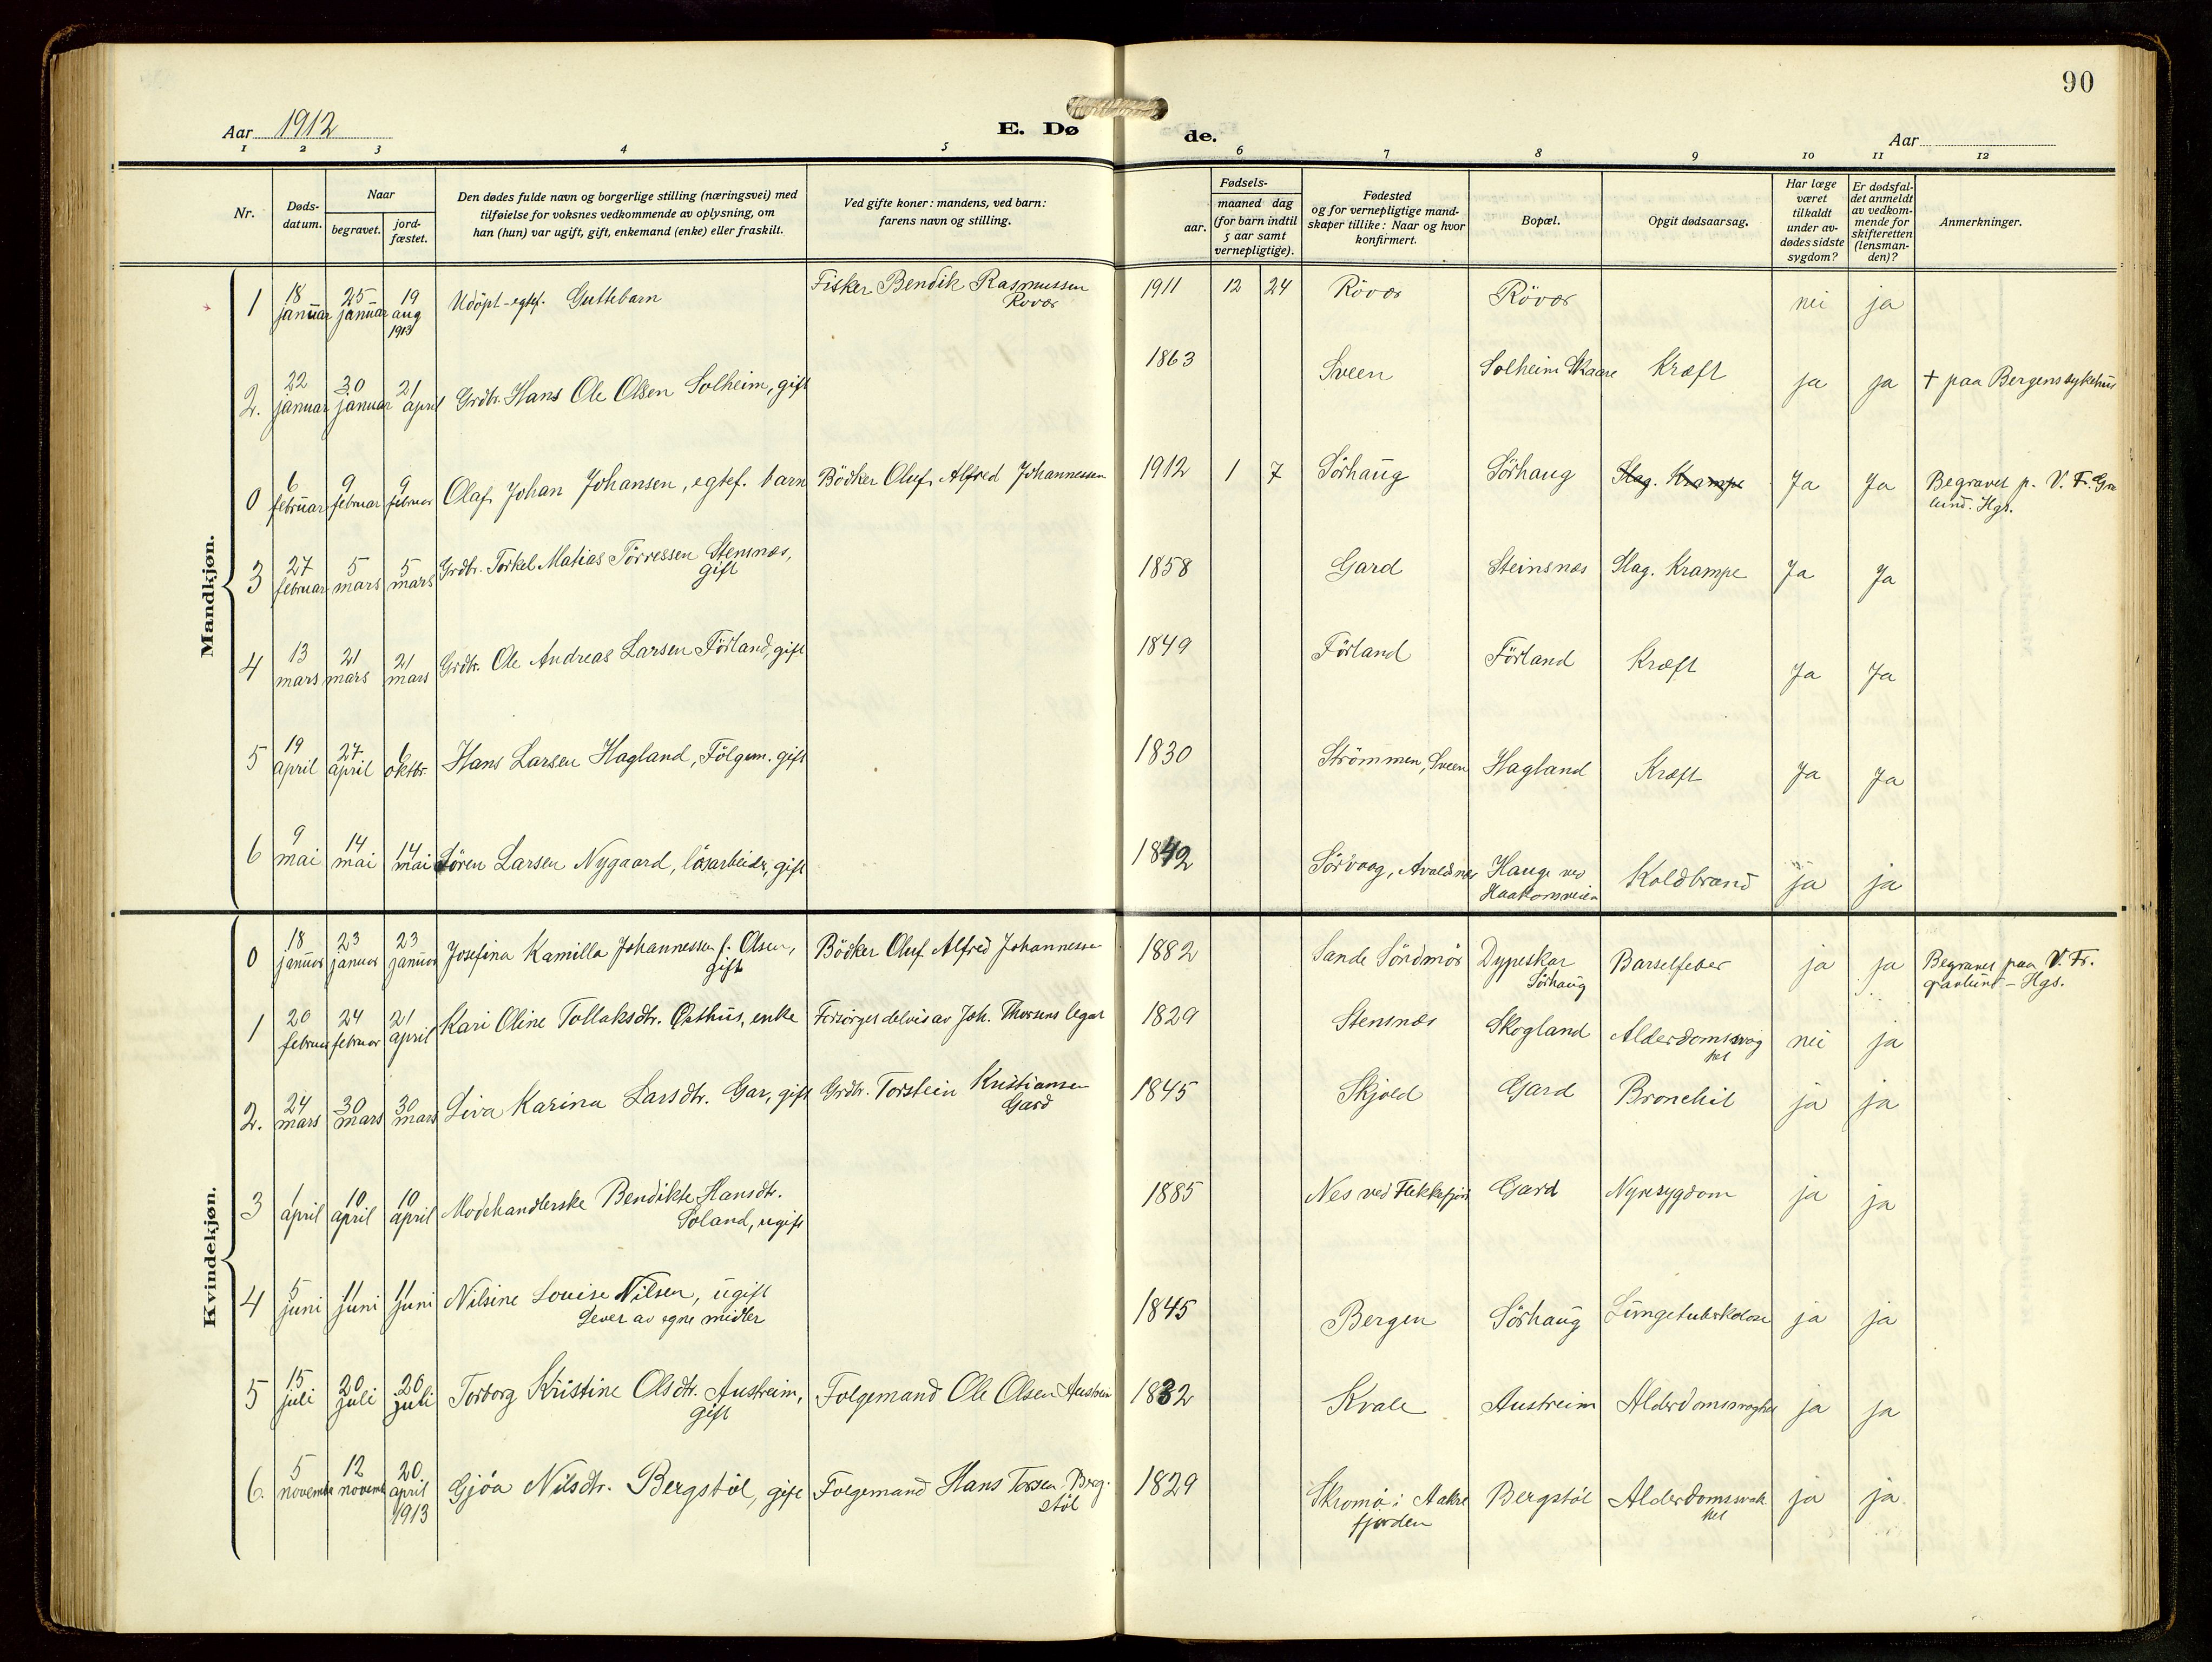 90
Aar 1912
E. Dø
de.
Aar
1 2 3 4 5 6 7 8 9 10 11 12
Nr.
Døds-
datum.
Naar
begravet.
jord-
fæstet.
Den dødes fulde navn og borgerlige stilling (næringsvei) med
tilføielse for voksnes vedkommende av oplysning, om
han (hun) var ugift, gift, enkemand (enke) eller fraskilt.
Ved gifte koner: mandens, ved barn:
farens navn og stilling.
Fødsels-
aar.
maaned dag
(for barn indtil
5 aar samt
vernepligtige).
Fødested
og for vernepligtige mand-
skaper tillike: Naar og hvor
konfirmert.
Bopæl.
Opgit dødsaarsag.
Har læge
været
tilkaldt
under av-
dødes sidste
sygdom?
Er dødsfal-
det anmeldt
av vedkom-
mende for
skifteretten
(lensman-
den)?
Anmerkninger.
Mandkjøn.
1 18 januar 25 januar 19 aug 1913 Udöpt-egtef. Guttebarn Fisker Bendik Rasmussen Rövær 1911 12 24 Rövær Rövær nei ja
2. 22 januar 30 januar 21 april Grdbr. Hans Ole Olsen Solheim, gift 1863 Sveen Solheim Skaare Kræft ja ja † paa Bergens sykehus
0 6 februar 9 februar 9 februar Olaf Johan Johansen, egtef. barn Bödker Oluf Alfred Johannessen 1912 1 7 Sörhaug Sörhaug Slag. Krampe Ja Ja Begravet p. V. Fr. Gra
lund. Hgs.
3 27 februar 5 mars 5 mars Grdbr. Torkel Matias Törressen Stensnæs,
gift 1858 Gard Steinsnæs Slag. Krampe Ja Ja
4 13 mars 21 mars 21 mars Grdbr. Ole Andreas Larsen Förland, gift 1849 Förland Förland Kræft Ja Ja
5 19 april 27 april 6 oktbr. Hans Larsen Hagland, Fölgem. gift 1830 Strömmen, Sveen Hagland Kræft Ja Ja
6 9 mai 14 mai 14 mai Sören Larsen Nygaard, lösarbeider, gift 1842 Sörvaag, Avaldsnes Hauge ved
Haakonsveien Koldbrand ja ja
Kvindekjøn.
0 18 januar 23 januar 23 januar Josefina Kamilla Johannessen f. Olsen,
gift Bödker Oluf Alfred Johannessen 1882 Sande Söndmör Dypeskar
Sörhaug Barselfeber ja ja Begravet paa V. Fr.
gravlund - Hgs.
1 20 februar 24 februar 21 april Kari Oline Tollaksdtr. Østhus, enke Forsörges delvis av Joh. Thorsens legat 1829 Stensnæs Skogland Alderdomssvag
het nei ja
2. 24 mars 30 mars 30 mars Siva Karina Larsdtr. Gar, gift Grdbr. Torstein Kristiansen
Gard 1845 Skjold Gard Bronchit ja ja
3 1 april 10 april 10 april Modehandlerske Bendikte Hansdtr.
Soland, ugift 1885 Nes ved Flekkefjord Gard Nyresygdom ja ja
4 5 juni 11 juni 11 juni Nilsine Louise Nilsen, ugift
Lever av egne midler 1845 Bergen Sörhaug Lungetuberkolose ja ja
5 15 juli 20 juli 20 juli Torborg Kristine Olsdtr. Austreim,
gift Folgemand Ole Olsen Austreim 1832 Kvale Austreim Alderdomssvaghet ja ja
6. 5 november 12 november 20 april 1913 Gjöa Nilsdtr. Bergstöl, gift Folgemand Hans Torsen Berg-
stöl 1829 Skromö i Aakre
fjorden Bergstöl Alderdomssvak
het ja ja.